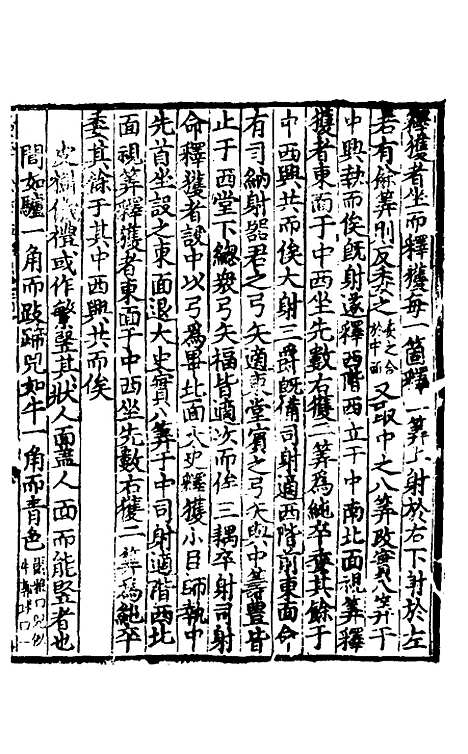 釋獲者坐而釋獲每一箇釋一筭上射於右下射於左
若有餘筭則反委之委之合於中西又取中之八筭改實八筭于
中興執而俟旣射遂釋西階西立于中南北面視筭釋
獲者東面于中西坐先數右獲二筭爲純卒委其餘于
中西興共而俟大射三爵旣備司射適西階前東面命
有司納射器君之弓矢適東堂賓之弓矢與中籌豐皆
止于西堂下總衆弓矢福皆適次而俟三耦卒射司射
命釋獲者設中以弓爲畢北面大史釋獲小臣師執中
先首坐設之東面退大史實八筭于中司射適階西北
面視筭釋獲者東面于中西坐先數右獲二筭爲純卒
委其餘于其中西興共而俟
皮樹儀禮或作繁竪其狀人面蓋人面而能竪者也
閭如驢一角而歧蹄兕如牛一角而青色